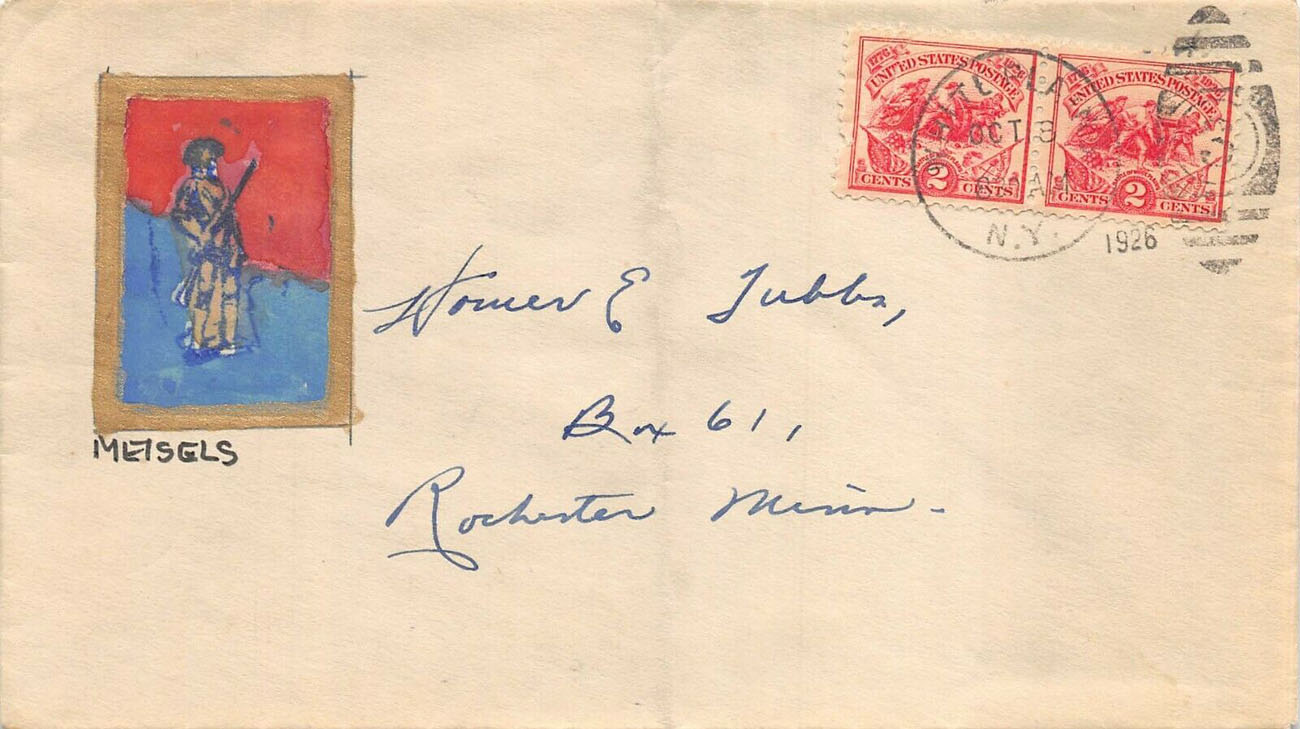 1776 1926 1776 1926
UNITED STATES POSTAGE UNITED STATES POSTAGE
CENTS 2 CENTS CENTS 2 CENTS
WHITE PLAINS
OCT 8
N.Y.
1926
METSELS
Homer E Tubbs,
Box 61,
Rochester Minn.